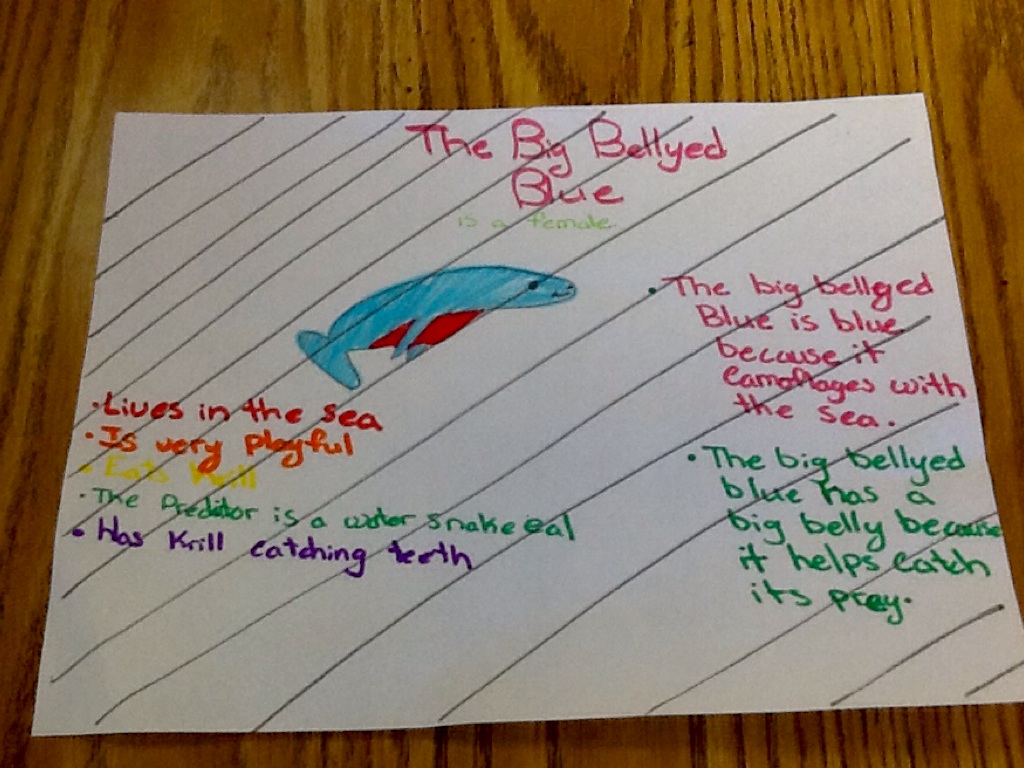 The Big Bellyed
Blue
is a female
• Lives in the sea
• Is very playful
• Eats Krill
• The Preditor is a water snake eal
• Has Krill catching teeth
• The big bellyed
Blue is blue
because it
camoflages with
the sea.
• The big bellyed
blue has a
big belly because
it helps catch
its prey.